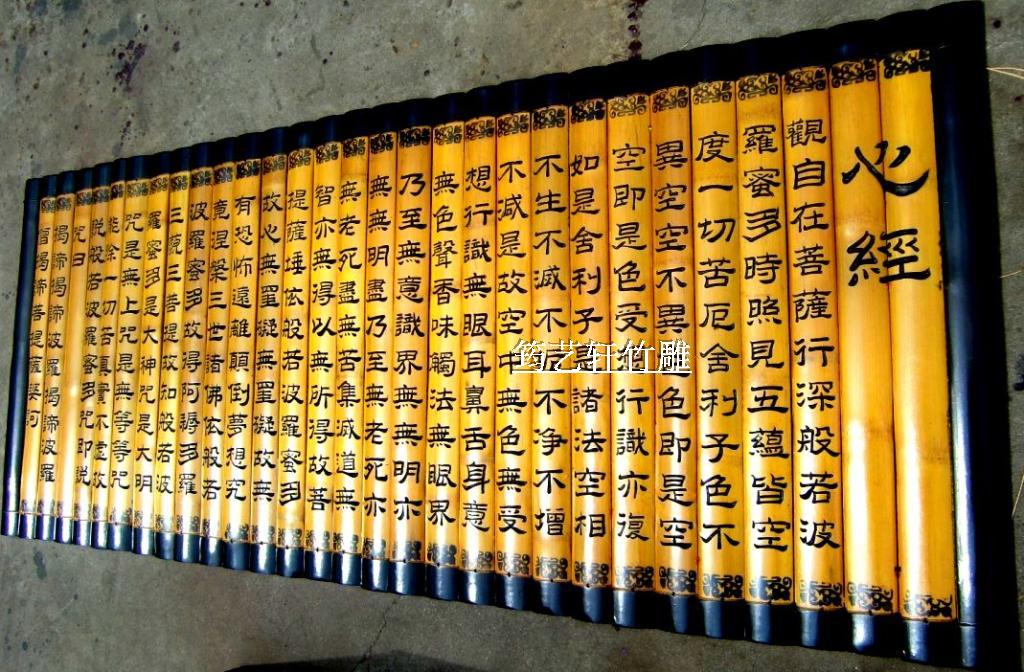 心經
觀自在菩薩行深般若波
羅蜜多時照見五蘊皆空
度一切苦厄舍利子色不
異空空不異色色即是空
空即是色受想行識亦復
如是舍利子是諸法空相
不生不滅不垢不净不增
不減是故空中無色無受
想行識無眼耳鼻舌身意
無色聲香味觸法無眼界
乃至無意識界無無明亦
無無明盡乃至無老死亦
無老死盡無苦集滅道無
智亦無得以無所得故菩
提薩埵依般若波羅蜜多
故心無罣礙無罣礙故無
有恐怖遠離顛倒夢想究
竟涅槃三世諸佛依般若
波羅蜜多故得阿耨多羅
三藐三菩提故知般若波
羅蜜多是大神咒是大明
咒是無上咒是無等等咒
能除一切苦真實不虛故
說般若波羅蜜多咒即說
咒曰
揭諦揭諦波羅揭諦波羅
僧揭諦菩提薩婆訶
筠艺轩竹雕